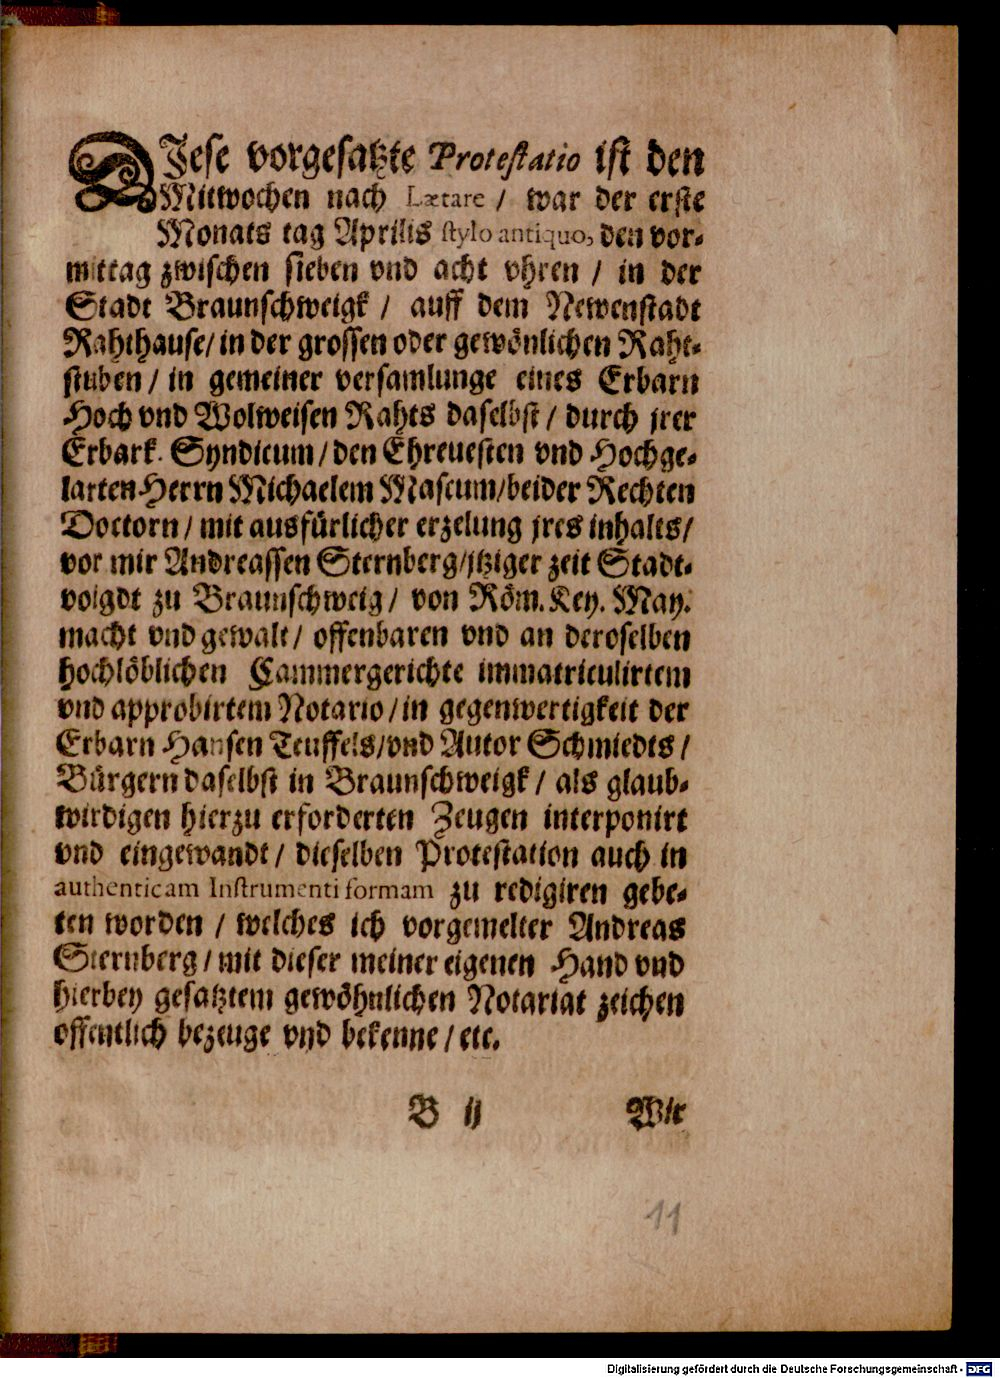 DIese vorgesatzte Protestatio ist den
Mitwochen nach Lætare / war der erste
Monats tag Aprilis stylo antiquo, den vor-
mittag zwischen sieben vnd acht vhren / in der
Stadt Braunschweigk / auff dem Newenstadt
Rahthause / in der grossen oder gewönlichen Raht-
stuben / in gemeiner versamlunge eines Erbarn
Hoch vnd Wolweisen Rahts daselbst / durch jrer
Erbark. Syndicum / den Ehreuesten vnd Hochge-
larten Herrn Michaelem Mascum / beider Rechten
Doctorn / mit ausfürlicher erzelung jres inhalts /
vor mir Andreassen Sternberg / jtziger zeit Stadt-
voigdt zu Braunschweig / von Röm. Key. May.
macht vnd gewalt / offenbaren vnd an deroselben
hochlöblichen Cammergerichte immatriculirtem
vnd approbirtem Notario / in gegenwertigkeit der
Erbarn Hansen Teuffels / vnd Autor Schmiedts /
Bürgern daselbst in Braunschweigk / als glaub-
wirdigen hierzu erforderten Zeugen interponirt
vnd eingewandt / dieselben Protestation auch in
authenticam Instrumenti formam zu redigiren gebe-
ten worden / welches ich vorgemelter Andreas
Sternberg / mit dieser meiner eigenen Hand vnd
hierbey gesatztem gewöhnlichen Notariat zeichen
offentlich bezeuge vnd bekenne / etc.
B ij Wir
11
Digitalisierung gefördert durch die Deutsche Forschungsgemeinschaft - DFG